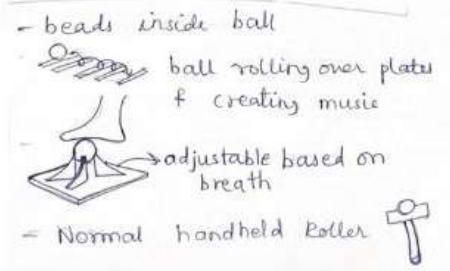 - beads inside ball
ball rolling over plates
& creating music
- adjustable based on
breath
- Normal handheld Roller